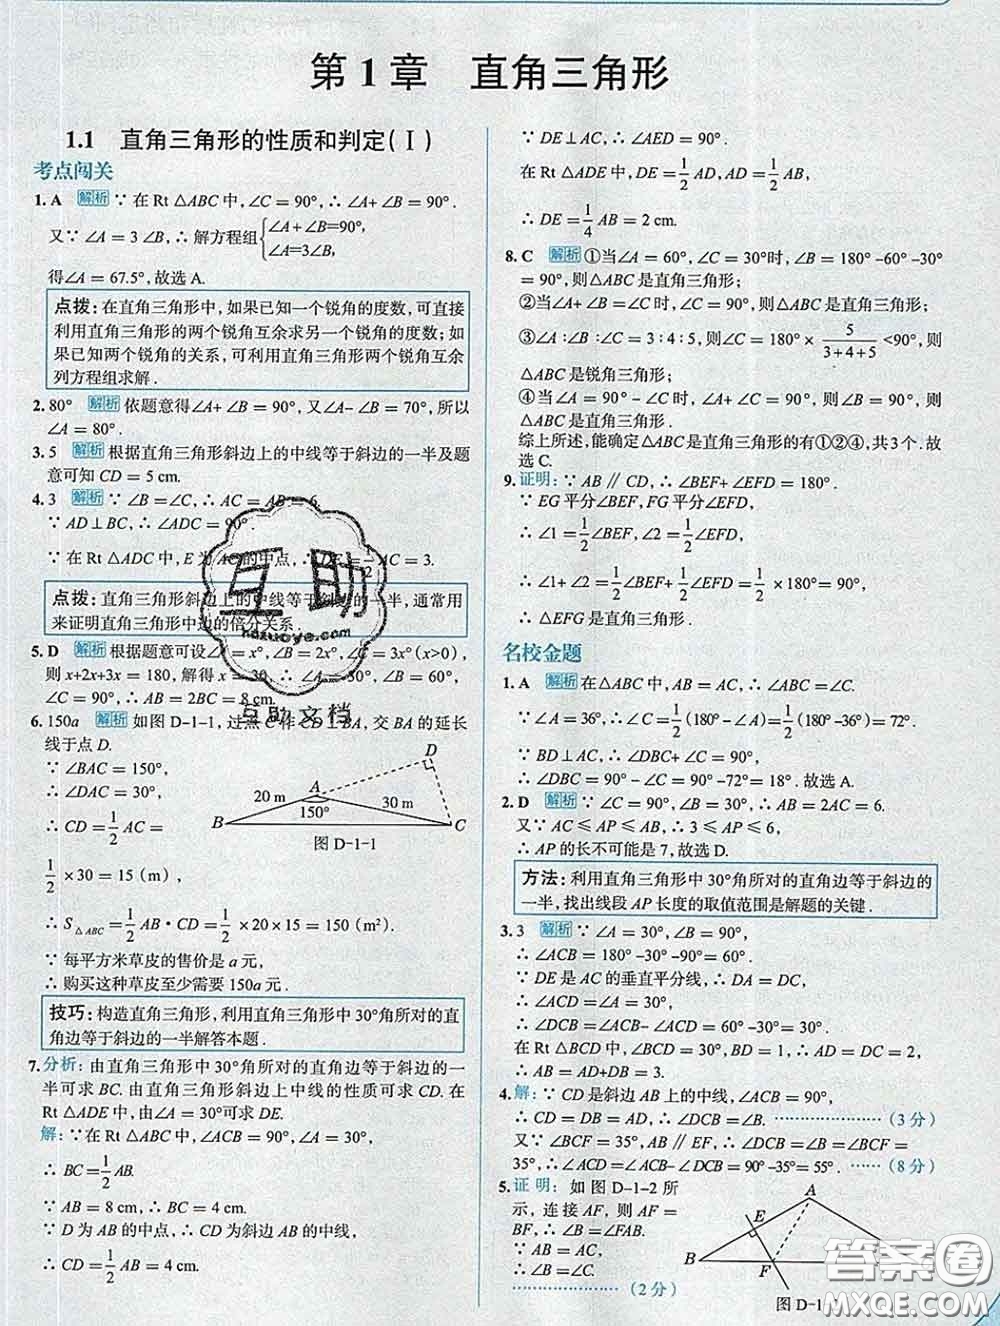 第1章 直角三角形
1.1 直角三角形的性质和判定(Ⅰ)
考点闯关
1. A 解析 ∵在 Rt△ABC 中,∠C = 90°,∴∠A+∠B = 90°.
又∵∠A = 3∠B,∴解方程组{∠A+∠B=90°,
∠A=3∠B,
得∠A = 67.5°,故选 A.
点拨:在直角三角形中,如果已知一个锐角的度数,可直接
利用直角三角形的两个锐角互余求另一个锐角的度数;如
果已知两个锐角的关系,可利用直角三角形两个锐角互余
列方程组求解.
2. 80° 解析 依题意得∠A+∠B = 90°,又∠A-∠B = 70°,所以
∠A = 80°.
3. 5 解析 根据直角三角形斜边上的中线等于斜边的一半及题
意可知 CD = 5 cm.
4. 3 解析 ∵∠B = ∠C,∴AC = AB = 6.
∵AD⊥BC,∴∠ADC = 90°.
∵在 Rt△ADC 中,E 为 AC 的中点,∴DE = 1/2 AC = 3.
点拨:直角三角形斜边上的中线等于斜边的一半,通常用
来证明直角三角形中边的倍分关系.
5. D 解析 根据题意可设∠A = x°,∠B = 2x°,∠C = 3x°(x>0),
则 x+2x+3x = 180,解得 x = 30.∴∠A = 30°,∠B = 60°,
∠C = 90°,∴AB = 2BC = 8 cm.
6. 150a 解析 如图 D-1-1,过点 C 作 CD⊥BA,交 BA 的延长
线于点 D.
∵∠BAC = 150°,
∴∠DAC = 30°,
∴CD = 1/2 AC =
1/2 ×30 = 15(m),
D
A
20 m
150°
30 m
B
C
图 D-1-1
∴S△ABC = 1/2 AB·CD = 1/2 ×20×15 = 150(m²).
∵每平方米草皮的售价是 a 元,
∴购买这种草皮至少需要 150a 元.
技巧:构造直角三角形,利用直角三角形中 30°角所对的直
角边等于斜边的一半解答本题.
7. 分析:由直角三角形中 30°角所对的直角边等于斜边的一
半可求 BC. 由直角三角形斜边上中线的性质可求 CD. 在
Rt△ADE 中,由∠A = 30°可求 DE.
解:∵在 Rt△ABC 中,∠ACB = 90°,∠A = 30°,
∴BC = 1/2 AB.
∵AB = 8 cm,∴BC = 4 cm.
∵D 为 AB 的中点,∴CD 为斜边 AB 的中线,
∴CD = 1/2 AB = 4 cm.
∵DE⊥AC,∴∠AED = 90°.
在 Rt△ADE 中,DE = 1/2 AD,AD = 1/2 AB,
∴DE = 1/4 AB = 2 cm.
8. C 解析 ①当∠A = 60°,∠C = 30°时,∠B = 180°-60°-30°
= 90°,则△ABC 是直角三角形;
②当∠A+∠B = ∠C 时,∠C = 90°,则△ABC 是直角三角形;
③∠A:∠B:∠C = 3:4:5,则∠C = 180°× 5/(3+4+5) <90°,则
△ABC 是锐角三角形;
④当∠A = 90°-∠C 时,∠B = 90°,则△ABC 是直角三角形.
综上所述,能确定△ABC 是直角三角形的有①②④,共3个.故
选 C.
9. 证明:∵AB∥CD,∴∠BEF+∠EFD = 180°.
∵EG 平分∠BEF,FG 平分∠EFD,
∴∠1 = 1/2 ∠BEF,∠2 = 1/2 ∠EFD,
∴∠1+∠2 = 1/2 (∠BEF+∠EFD) = 1/2 ×180° = 90°,
∴△EFG 是直角三角形.
名校金题
1. A 解析 在△ABC 中,AB = AC,∴∠ABC = ∠C.
∵∠A = 36°,∴∠C = 1/2 (180°-∠A) = 1/2 (180°-36°) = 72°.
∵BD⊥AC,∴∠DBC+∠C = 90°,
∴∠DBC = 90°-∠C = 90°-72° = 18°. 故选 A.
2. D 解析 ∵∠C = 90°,∠B = 30°,∴AB = 2AC = 6.
又∵AC ≤ AP ≤ AB,∴3 ≤ AP ≤ 6,
∴AP 的长不可能是 7,故选 D.
方法:利用直角三角形中 30°角所对的直角边等于斜边的
一半,找出线段 AP 长度的取值范围是解题的关键.
3. 3 解析 ∵∠A = 30°,∠B = 90°,
∴∠ACB = 180°-30°-90° = 60°.
∵DE 是 AC 的垂直平分线,∴DA = DC,
∴∠A = ∠ACD = 30°,
∴∠DCB = ∠ACB-∠ACD = 60°-30° = 30°.
在 Rt△BCD 中,∠DCB = 30°,BD = 1,∴CD = AD = 2,
∴AB = AD+BD = 3.
4. 解:∵CD 是斜边 AB 上的中线,∠ACB = 90°,
∴CD = DB = AD,∴∠DCB = ∠B. ……………(3分)
又∵∠BCF = 35°,AB∥EF,∴∠DCB = ∠B = ∠BCF =
35°,∴∠ACD = ∠ACB-∠DCB = 90°-35° = 55°. ……(8分)
5. 证明:如图 D-1-2 所
示,连接 AF,则 AF =
BF,∴∠B = ∠FAB.
∵AB = AC,
∴∠B = ∠C.
……………(2分)
A
E
B
F
图 D-1-
互助
hezuoye.com
互助文档
答案圈
MXQE.COM